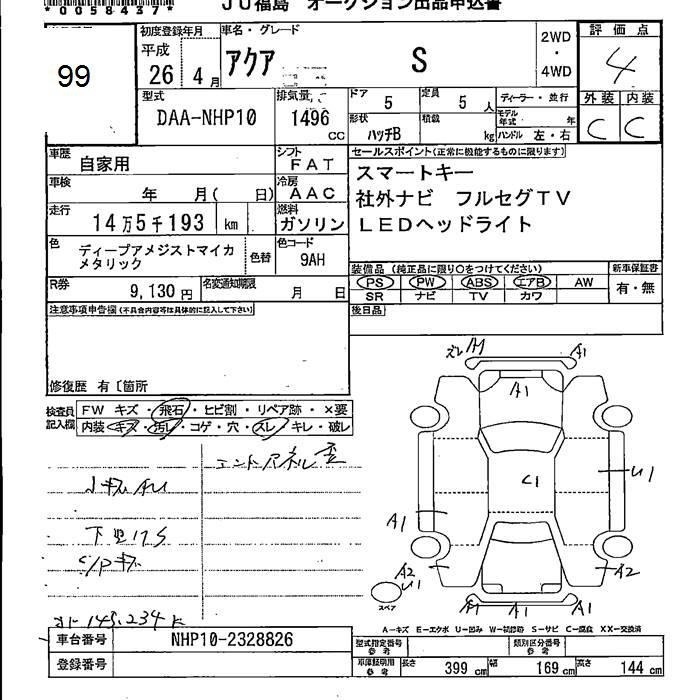 *0058437*
JU福島 オークション出品申込書
99
初度登録年月
平成
26年 4月
車名・グレード
アクア S
2WD
・
4WD
評価点
4
外装 内装
C C
型式
DAA-NHP10
排気量
1496 CC
ドア 5
定員 5 人
形状 ハッチB
積載 kg
ディーラー・並行
モデル年式 年
ハンドル 左・右
車歴 自家用
シフト FAT
車検 年 月( 日)
冷房 AAC
走行 14万5千193 km
燃料 ガソリン
色 ディープアメジストマイカメタリック
色替
色コード 9AH
R券 9,130円
名変通知期限 月 日
セールスポイント(正常に機能するものに限ります)
スマートキー
社外ナビ フルセグTV
LEDヘッドライト
装備品(純正品に限り○をつけてください)
PS PW ABS エアB AW
SR ナビ TV カワ
新車保証書
有・無
後日品
注意事項申告欄(不具合内容等は具体的に記入して下さい)
修復歴 有〔箇所
検査員記入欄
FW キズ・飛石・ヒビ割・リペア跡・×要
内装・キズ・汚レ・コゲ・穴・スレ・キレ・破レ
ズレ A1 A1
A1
C1
U1
A1
A2 U1
A2
A1 A1 A1
スペア
145,234 K
A-キズ E-エクボ U-凹み W-補修跡 S-サビ C-腐食 XX-交換済
車台番号 NHP10-2328826
登録番号
型式指定番号 参考
類別区分番号 参考
車庫証明用 参考
長さ 399 cm
幅 169 cm
高さ 144 cm